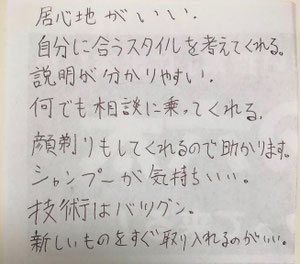 居心地がいい.
自分に合うスタイルを考えてくれる。
説明が分かりやすい.
何でも相談に乗ってくれる.
顔剃りもしてくれるので助かります。
シャンプーが気持ちいい。
技術はバツグン。
新しいものをすぐ取り入れるのがいい。